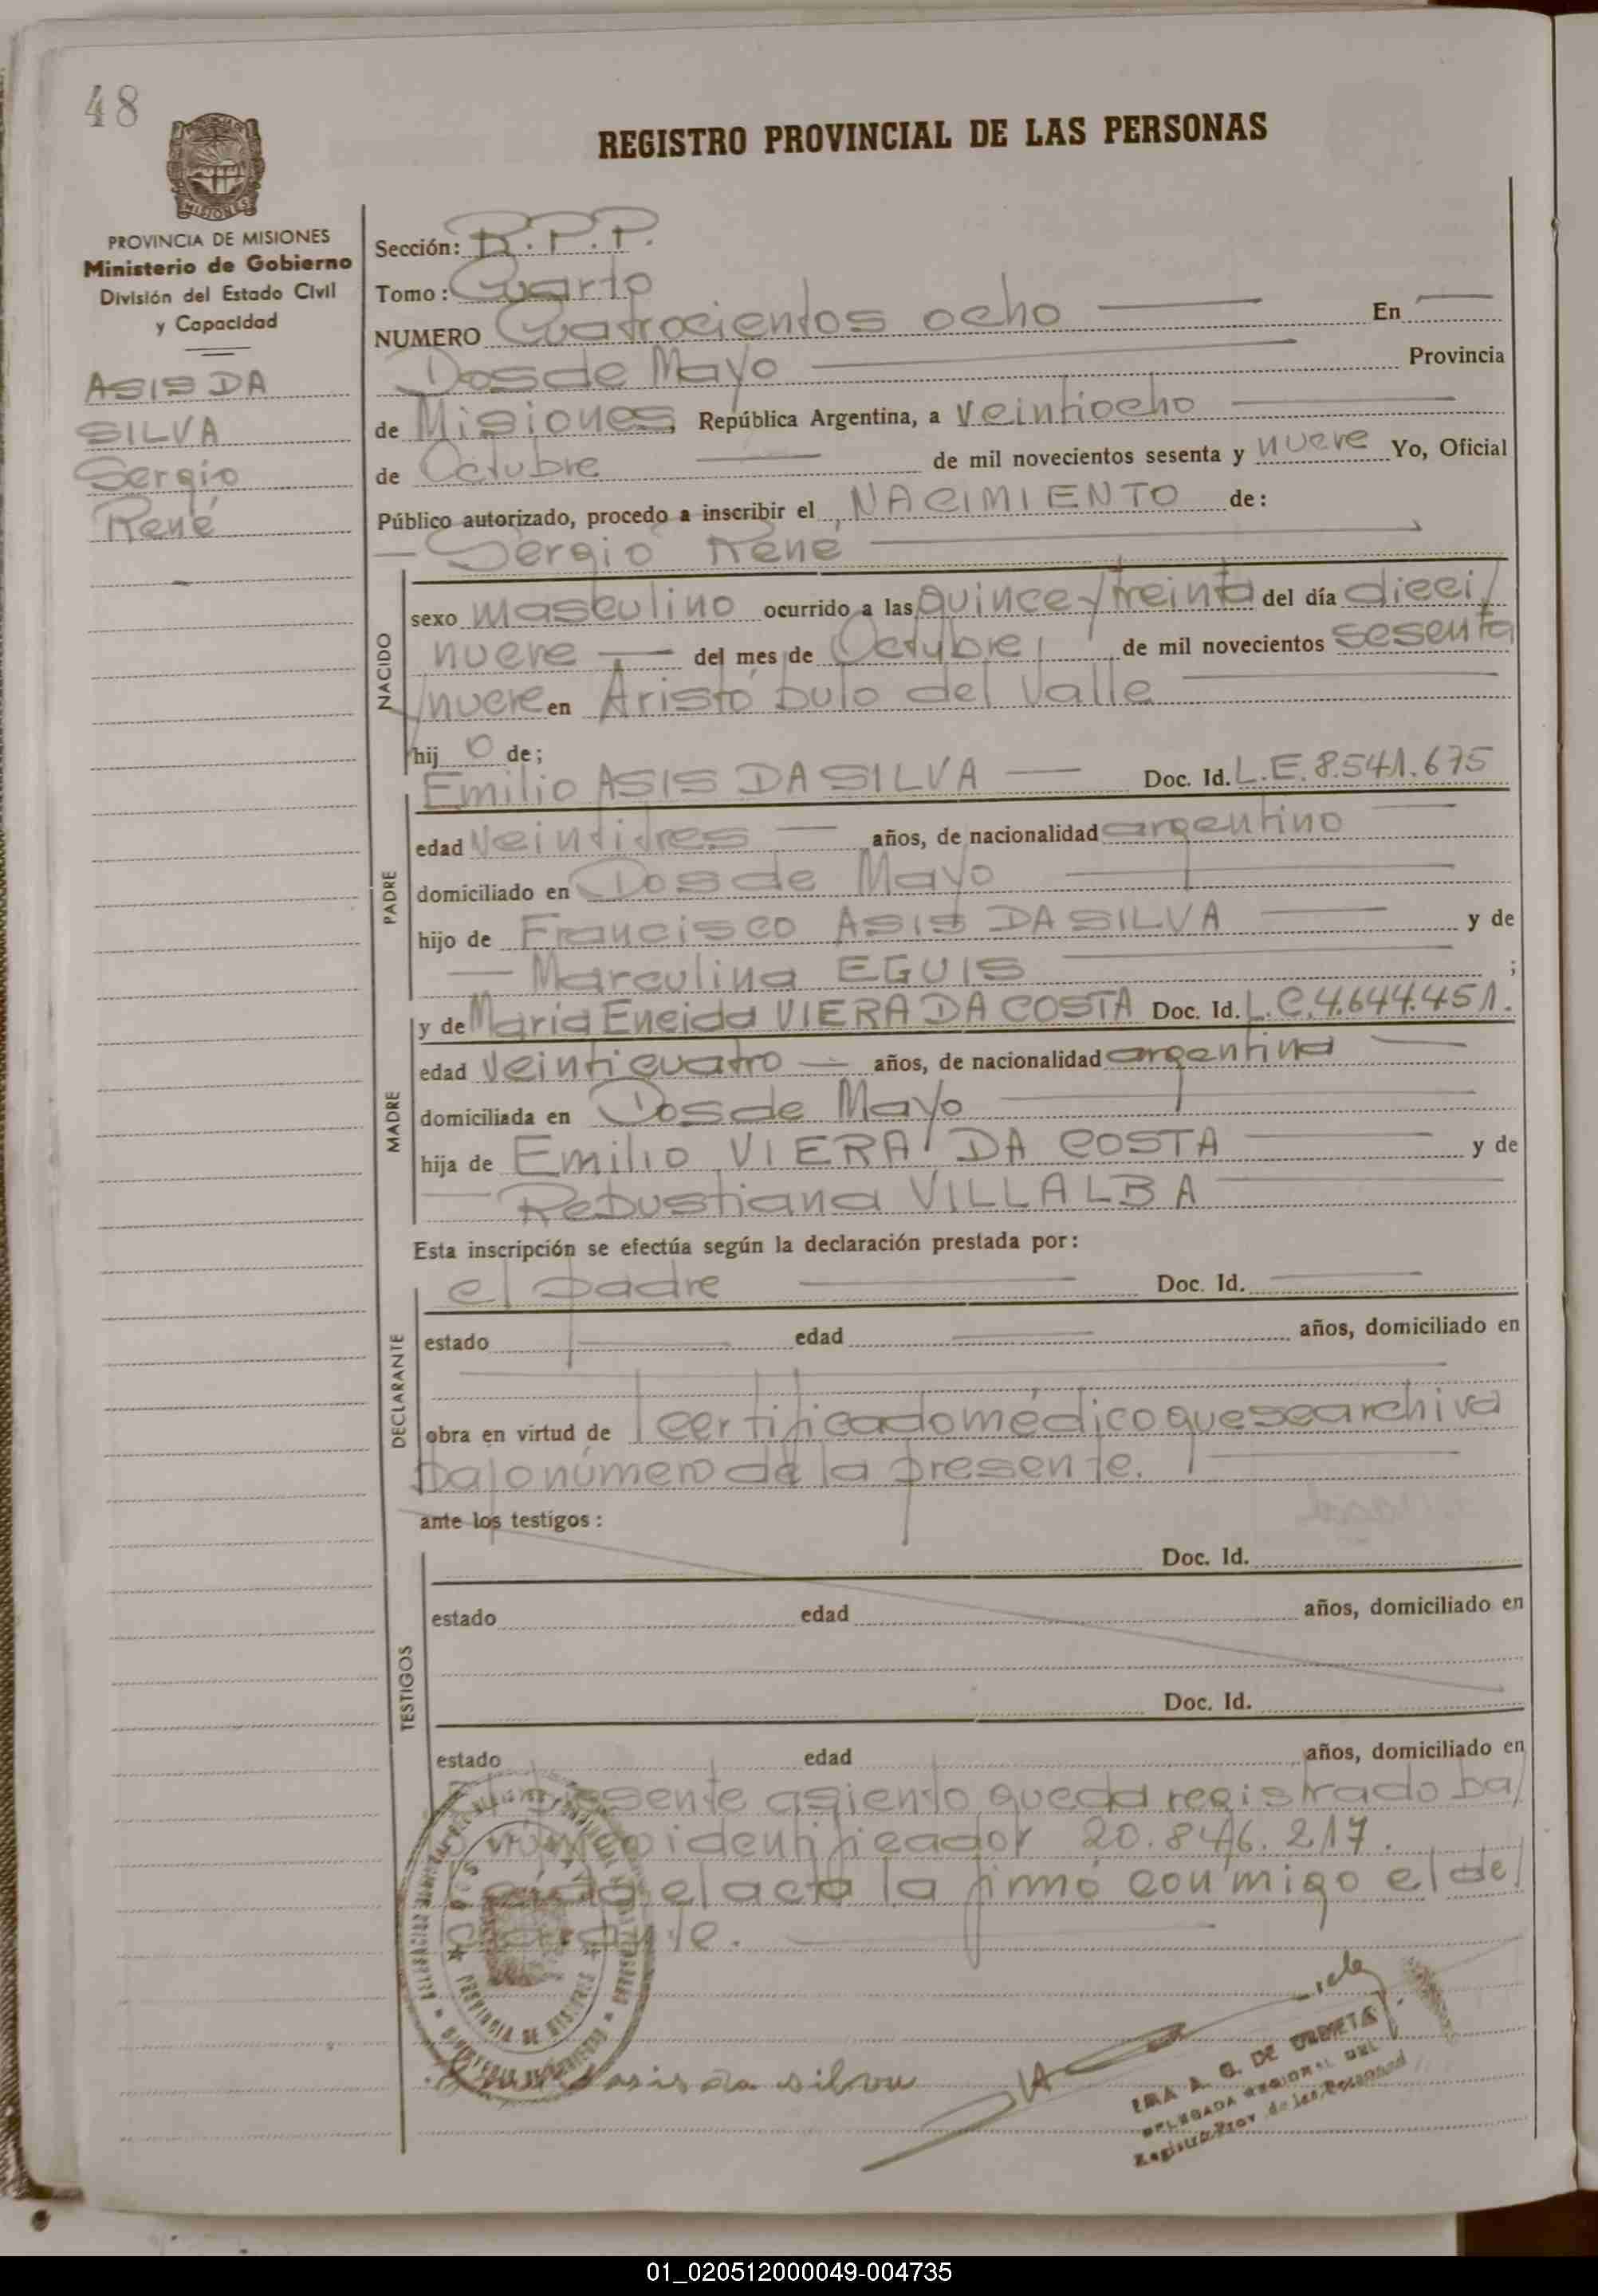 48
REGISTRO PROVINCIAL DE LAS PERSONAS
MISIONES
PROVINCIA DE MISIONES
Ministerio de Gobierno
División del Estado Civil
y Capacidad
ASIS DA
SILVA
Sergio
René
Sección: R.P.P.
Tomo: Cuarto
NUMERO Cuatrocientos ocho En
Dos de Mayo Provincia
de Misiones, República Argentina, a veintiocho
de Octubre de mil novecientos sesenta y nueve Yo, Oficial
Público autorizado, procedo a inscribir el NACIMIENTO de:
Sergio René
NACIDO
sexo masculino ocurrido a las quince y treinta del día dieci/
nueve del mes de Octubre de mil novecientos sesenta
y nueve en Aristóbulo del Valle
hij o de;
PADRE
Emilio ASIS DA SILVA Doc. Id. L.E. 8.541.675
edad veintitres años, de nacionalidad argentino
domiciliado en Dos de Mayo
hijo de Francisco ASIS DA SILVA y de
Marculina EGUIS ;
MADRE
y de Maria Eneida VIERA DA COSTA Doc. Id. L.C. 4.644.451.
edad veinticuatro años, de nacionalidad argentina
domiciliada en Dos de Mayo
hija de Emilio VIERA DA COSTA y de
Rebustiana VILLALBA
Esta inscripción se efectúa según la declaración prestada por:
DECLARANTE
el padre Doc. Id.
estado edad años, domiciliado en
obra en virtud de certificado médico que se archiva
bajo número de la presente.
ante los testigos:
TESTIGOS
Doc. Id.
estado edad años, domiciliado en
Doc. Id.
estado edad años, domiciliado en
El presente asiento queda registrado ba/
jo número identificador 20.846.217.
Leida el acta la firmó conmigo el de/
clarante.
PROVINCIA DE MISIONES
asis da silva
DELEGADA REGIONAL DEL
Registro Prov. de las Personas
01_020512000049-004735